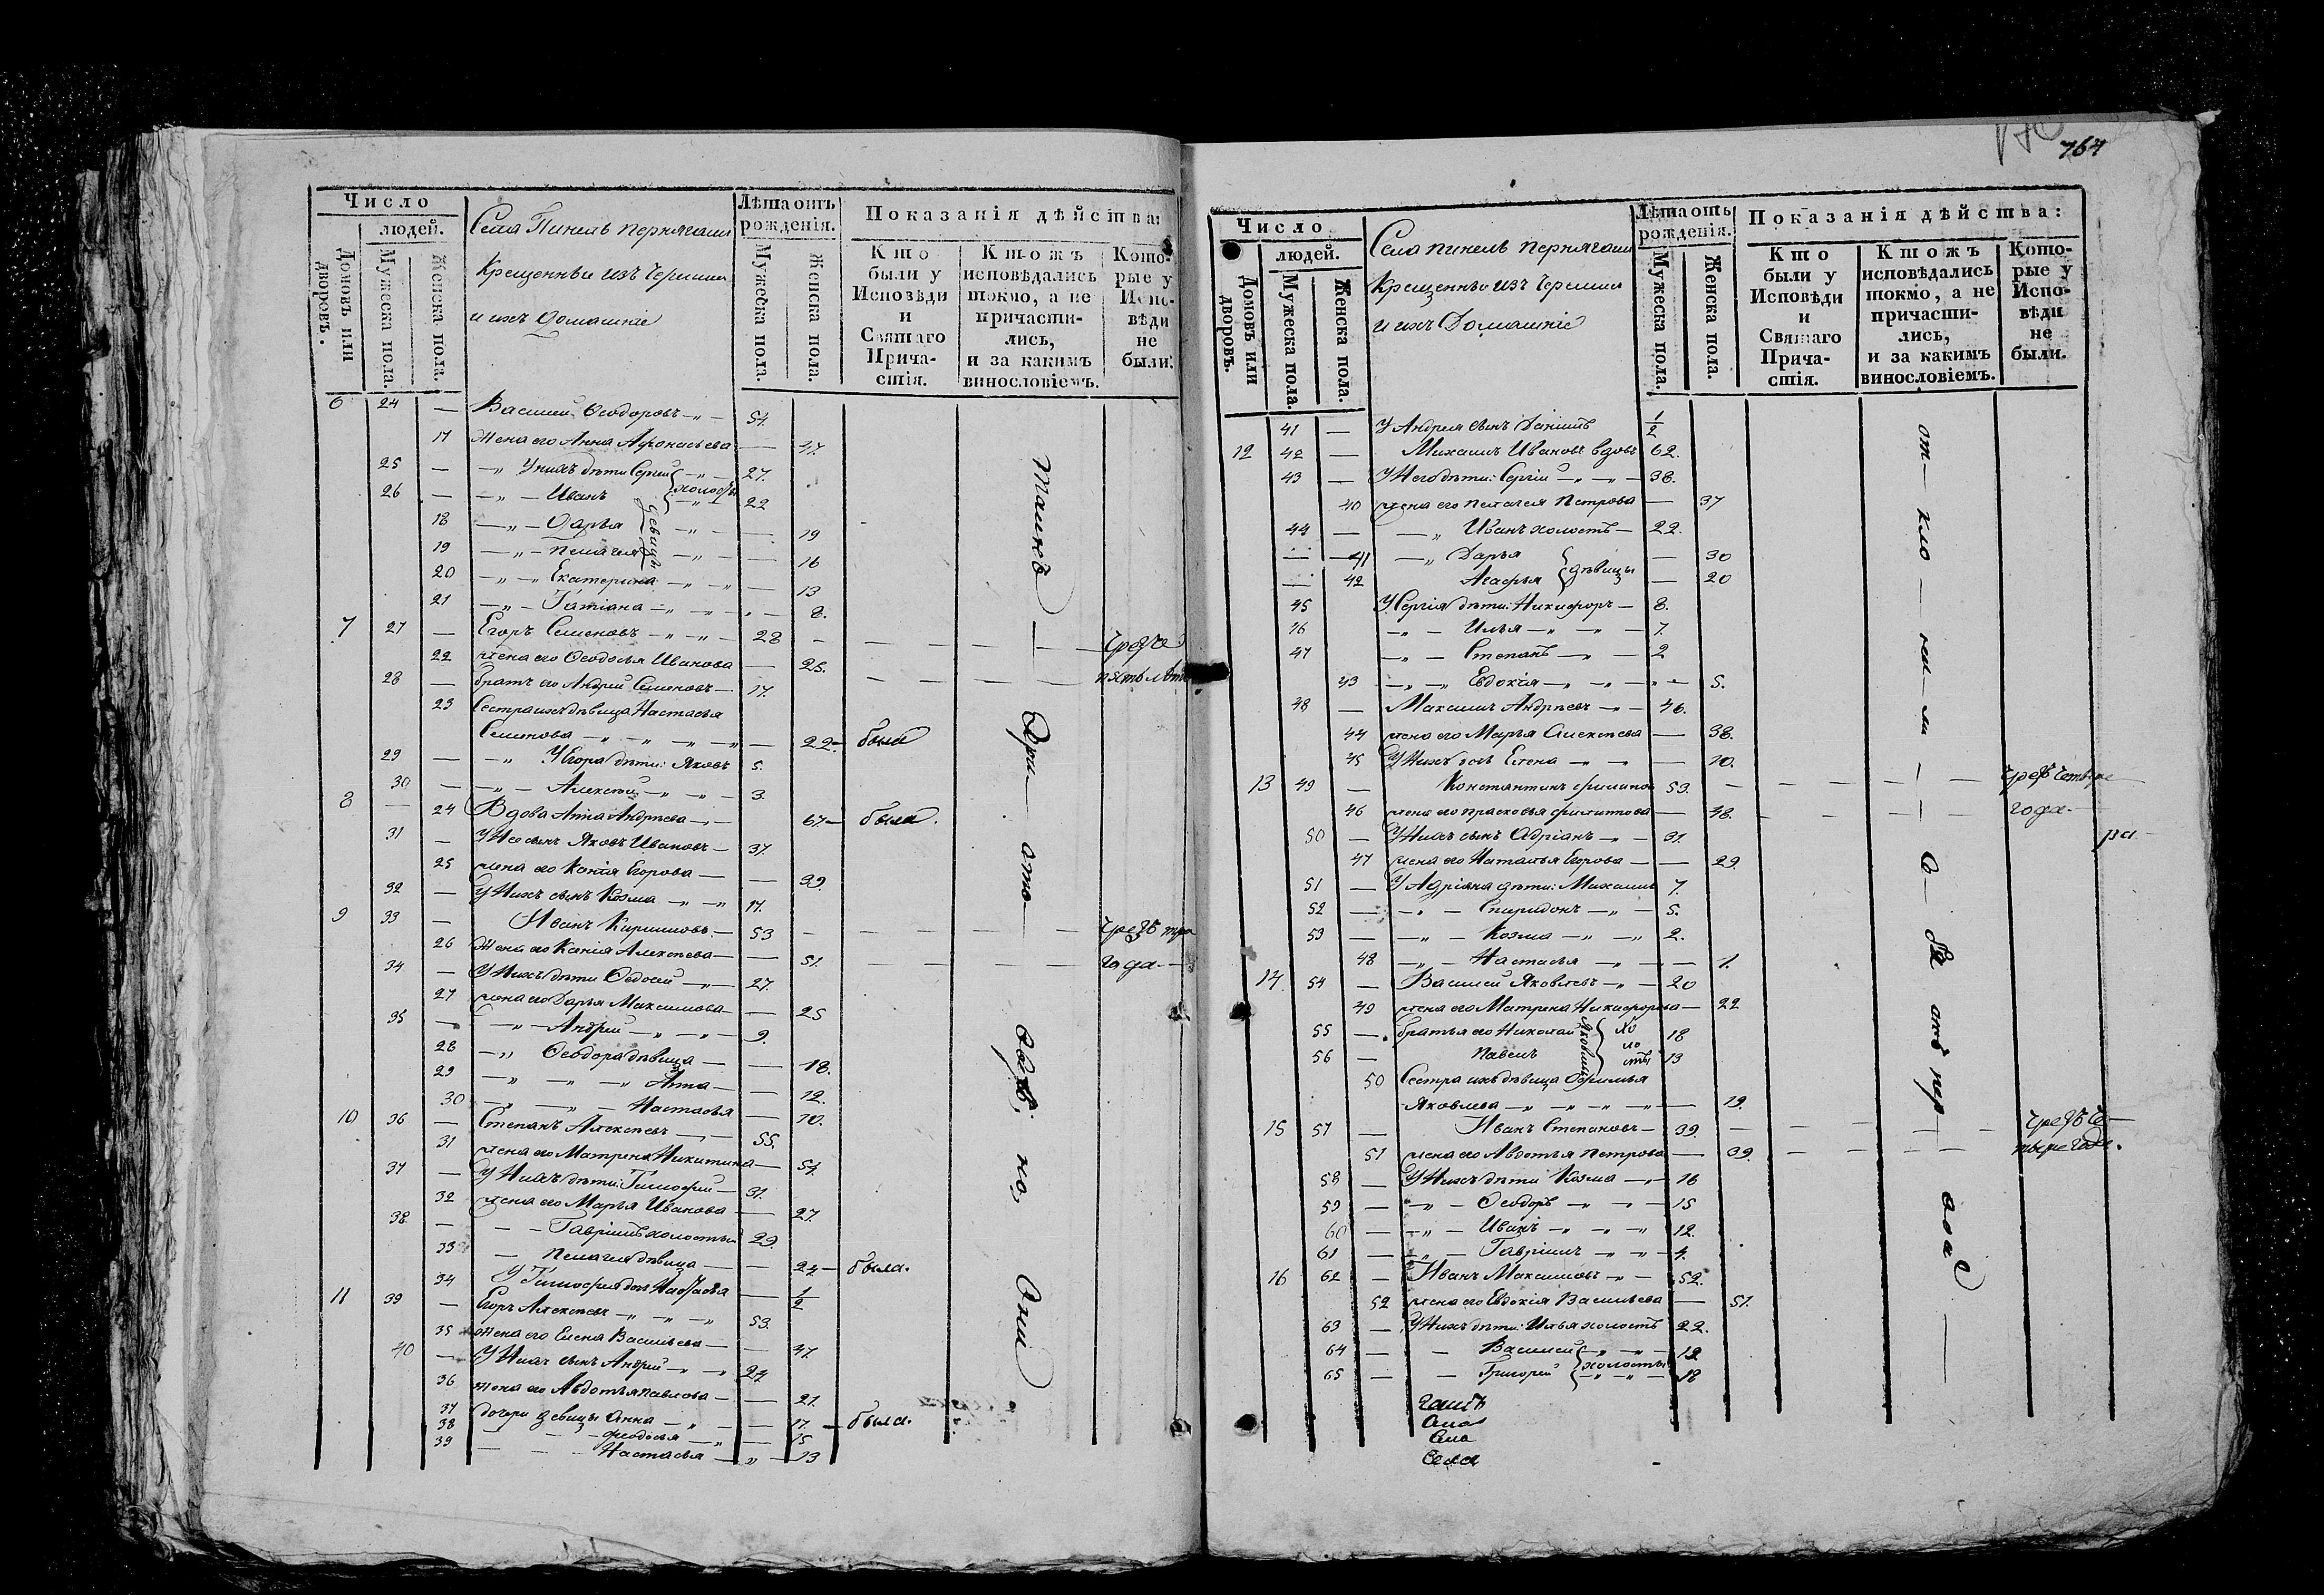 Число
людей.
Домовъ или дворовъ.
Мужеска пола.
Женска пола.
Села Пинель пернягаши
Крещенные изъ Черемис
и ихъ домашніе
Лѣта отъ рожденія.
Мужеска пола.
Женска пола.
Показанія дѣйства:
Кто были у Исповѣди и Святаго Причастія.
Кто жъ исповѣдались токмо, а не причастились, и за какимъ винословіемъ.
Которые у Исповѣди не были.
6 24 — Василей Ѳеодоровъ — 54.
17 Жена его Анна Афонасьева — 47.
25 — У нихъ дѣти Сергей — 27.
26 — Иванъ холосты 22
18 — Дарья — 19
19 — Пелагея девицы — 16
20 — Екатерина — 13
21 — Татіана — 8.
7 27 — Егоръ Семеновъ — 28 — чрезъ
22 жена его Ѳеодосья Иванова — 25.
28 — братъ его Андрей Семеновъ — 17. — пять летъ
23 Сестра ихъ дѣвица Настасья
Семенова — 22 — была
29 — У Егора дѣти: Яковъ 5.
30 — Алексей — 3.
8 — 24 Вдова Анна Андреева — 67 — была.
31 — У Нее сынъ Яковъ Ивановъ — 37.
25 жена его Ксенія Егорова — 39.
32 — У Нихъ сынъ Козма — 17.
9 33 — Иванъ Кириловъ — 53 — чрезъ три
26 Жена его Ксенія Алексеева — 51. — года
34 — У Нихъ дѣти Ѳедосей — 27.
27 жена его Дарья Максимова — 25
35 — Андрей — 9.
28 — Ѳеодора дѣвица — 18.
29 — Анна — 12.
30 — Настасья — 10.
10 36 — Степанъ Алексеевъ — 55.
31 жена его Матрена Никитина — 54.
37 — У Нихъ дѣти: Тимофей — 31.
32 жена его Марья Иванова — 27.
38. — Гавріилъ холостъ 29.
33 — Пелагея дѣвица — 24 — была.
34 У Тимофея дочь Настасья — 1/2
11 39 — Егоръ Алексеевъ — 53.
35 жена его Елена Васильева — 47.
40 — У Нихъ сынъ Андрей — 24
36 жена его Авдотья Павлова — 21.
37 дочери девицы Анна — 17 — была.
38 — Феодосья — 15
39 — Настасья — 13
764
Число
людей.
Домовъ или дворовъ.
Мужеска пола.
Женска пола.
Села пинель пернягаши
Крещенные изъ Черемис
и ихъ Домашніе
Лѣта отъ рожденія.
Мужеска пола.
Женска пола.
Показанія дѣйства:
Кто были у Исповѣди и Святаго Причастія.
Кто жъ исповѣдались токмо, а не причастились, и за какимъ винословіемъ.
Которые у Исповѣди не были.
41 — У Андрея сынъ Даніилъ 1/2
12 42 — Михаилъ Ивановъ вдовъ 62.
43 — У Него дѣти: Сергій — 38.
40 жена его Пелагея Петрова — 37
44 — Иванъ холостъ — 22.
41 — Дарья — 30
42 Агафья дѣвицы — 20
45 У Сергія дѣти: Никифоръ — 8.
46 — Илья — 7.
47 — Степанъ — 2
43 — Евдокія — 5.
48 — Максимъ Андреевъ — 46.
44 жена его Марья Алексеева — 38.
45 У Нихъ дочь Елена — 10.
13 49 — Константинъ Филипов 53. — чрезъ четыре
46 жена его Прасковья Филипова — 48. — года.
50 — У Нихъ сынъ Адріанъ — 31.
47 жена его Наталья Егорова — 29.
51 — У Адріана дѣти: Михаилъ 7.
52 — Спиридонъ — 5.
53 — Козма — 2.
48 — Настасья — 1.
14 54 — Василей Яковлевъ — 20
49 жена его Матрена Никифорова — 22
55 — братья его Николай Яковлевы холосты 18
56 — Павелъ 13
50 Сестра ихъ дѣвица Ефимья
Яковлева — 19.
15 57 — Иванъ Степановъ — 39. — чрезъ че-
51 жена его Авдотья Петрова — 39. — тыре года.
58 — У Нихъ дѣти Козма — 16
59 — Ѳеодоръ — 15
60 — Иванъ — 12.
61 — Гавріилъ — 4.
16 62 — Иванъ Максимовъ — 52.
52 жена его Евдокія Васильева — 51.
63 — У Нихъ дѣти: Илья холостъ 22.
64 — Василей — 19
65 — Григорей холосты — 18
Села